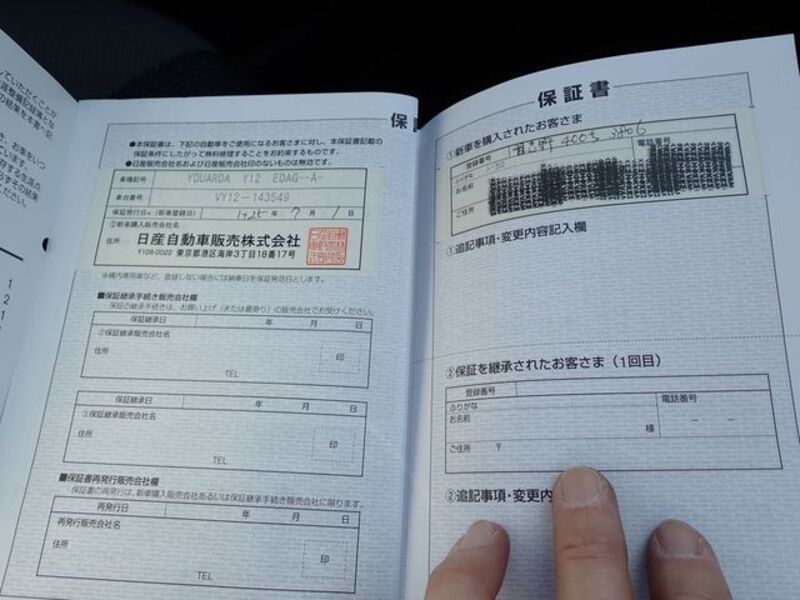 保証書
●本保証書は、下記の自動車をご使用になるお客さまに対し、本保証書記載の
保証条件にしたがって無料修理することをお約束するものです。
●日産販売会社名および日産販売会社印のないものは無効です。
車種記号 YDUARDA Y12 EDAG--A-
車台番号 VY12-143549
保証発行日※(新車登録日) H25年 7月 1日
①新車購入販売会社名
日産自動車販売株式会社
住所 〒108-0022 東京都港区海岸3丁目18番17号
※構内専用車など、登録しない場合には納車日を保証発効日とします。
■保証継承手続き販売会社欄
保証の継承手続きは、お買い上げ(または最寄り)の販売会社でお受けください。
保証継承日 年 月 日
②保証継承販売会社名
住所
印
TEL
保証継承日 年 月 日
③保証継承販売会社名
住所
印
TEL
■保証書再発行販売会社欄
保証書の再発行は、新車購入販売会社あるいは保証継承手続き販売会社に限ります。
再発行日 年 月 日
再発行販売会社名
住所
印
TEL
保証書
①新車を購入されたお客さま
登録番号 400 3806
電話番号
ふりがな
お名前
ご住所
①追記事項・変更内容記入欄
②保証を継承されたお客さま(1回目)
登録番号
ふりがな
電話番号
お名前
様
－ －
ご住所 〒
②追記事項・変更内